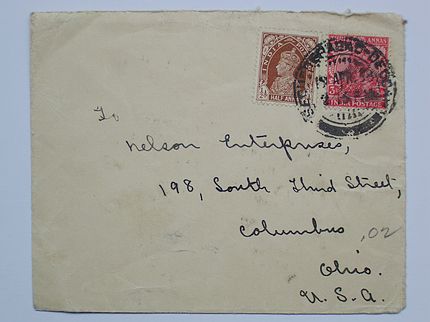 INDIA POSTAGE
HALF ANNA
ANNAS
INDIA POSTAGE
To
Nelson Enterprises,
198, South Third Street,
Columbus ,02
Ohio.
U.S.A.